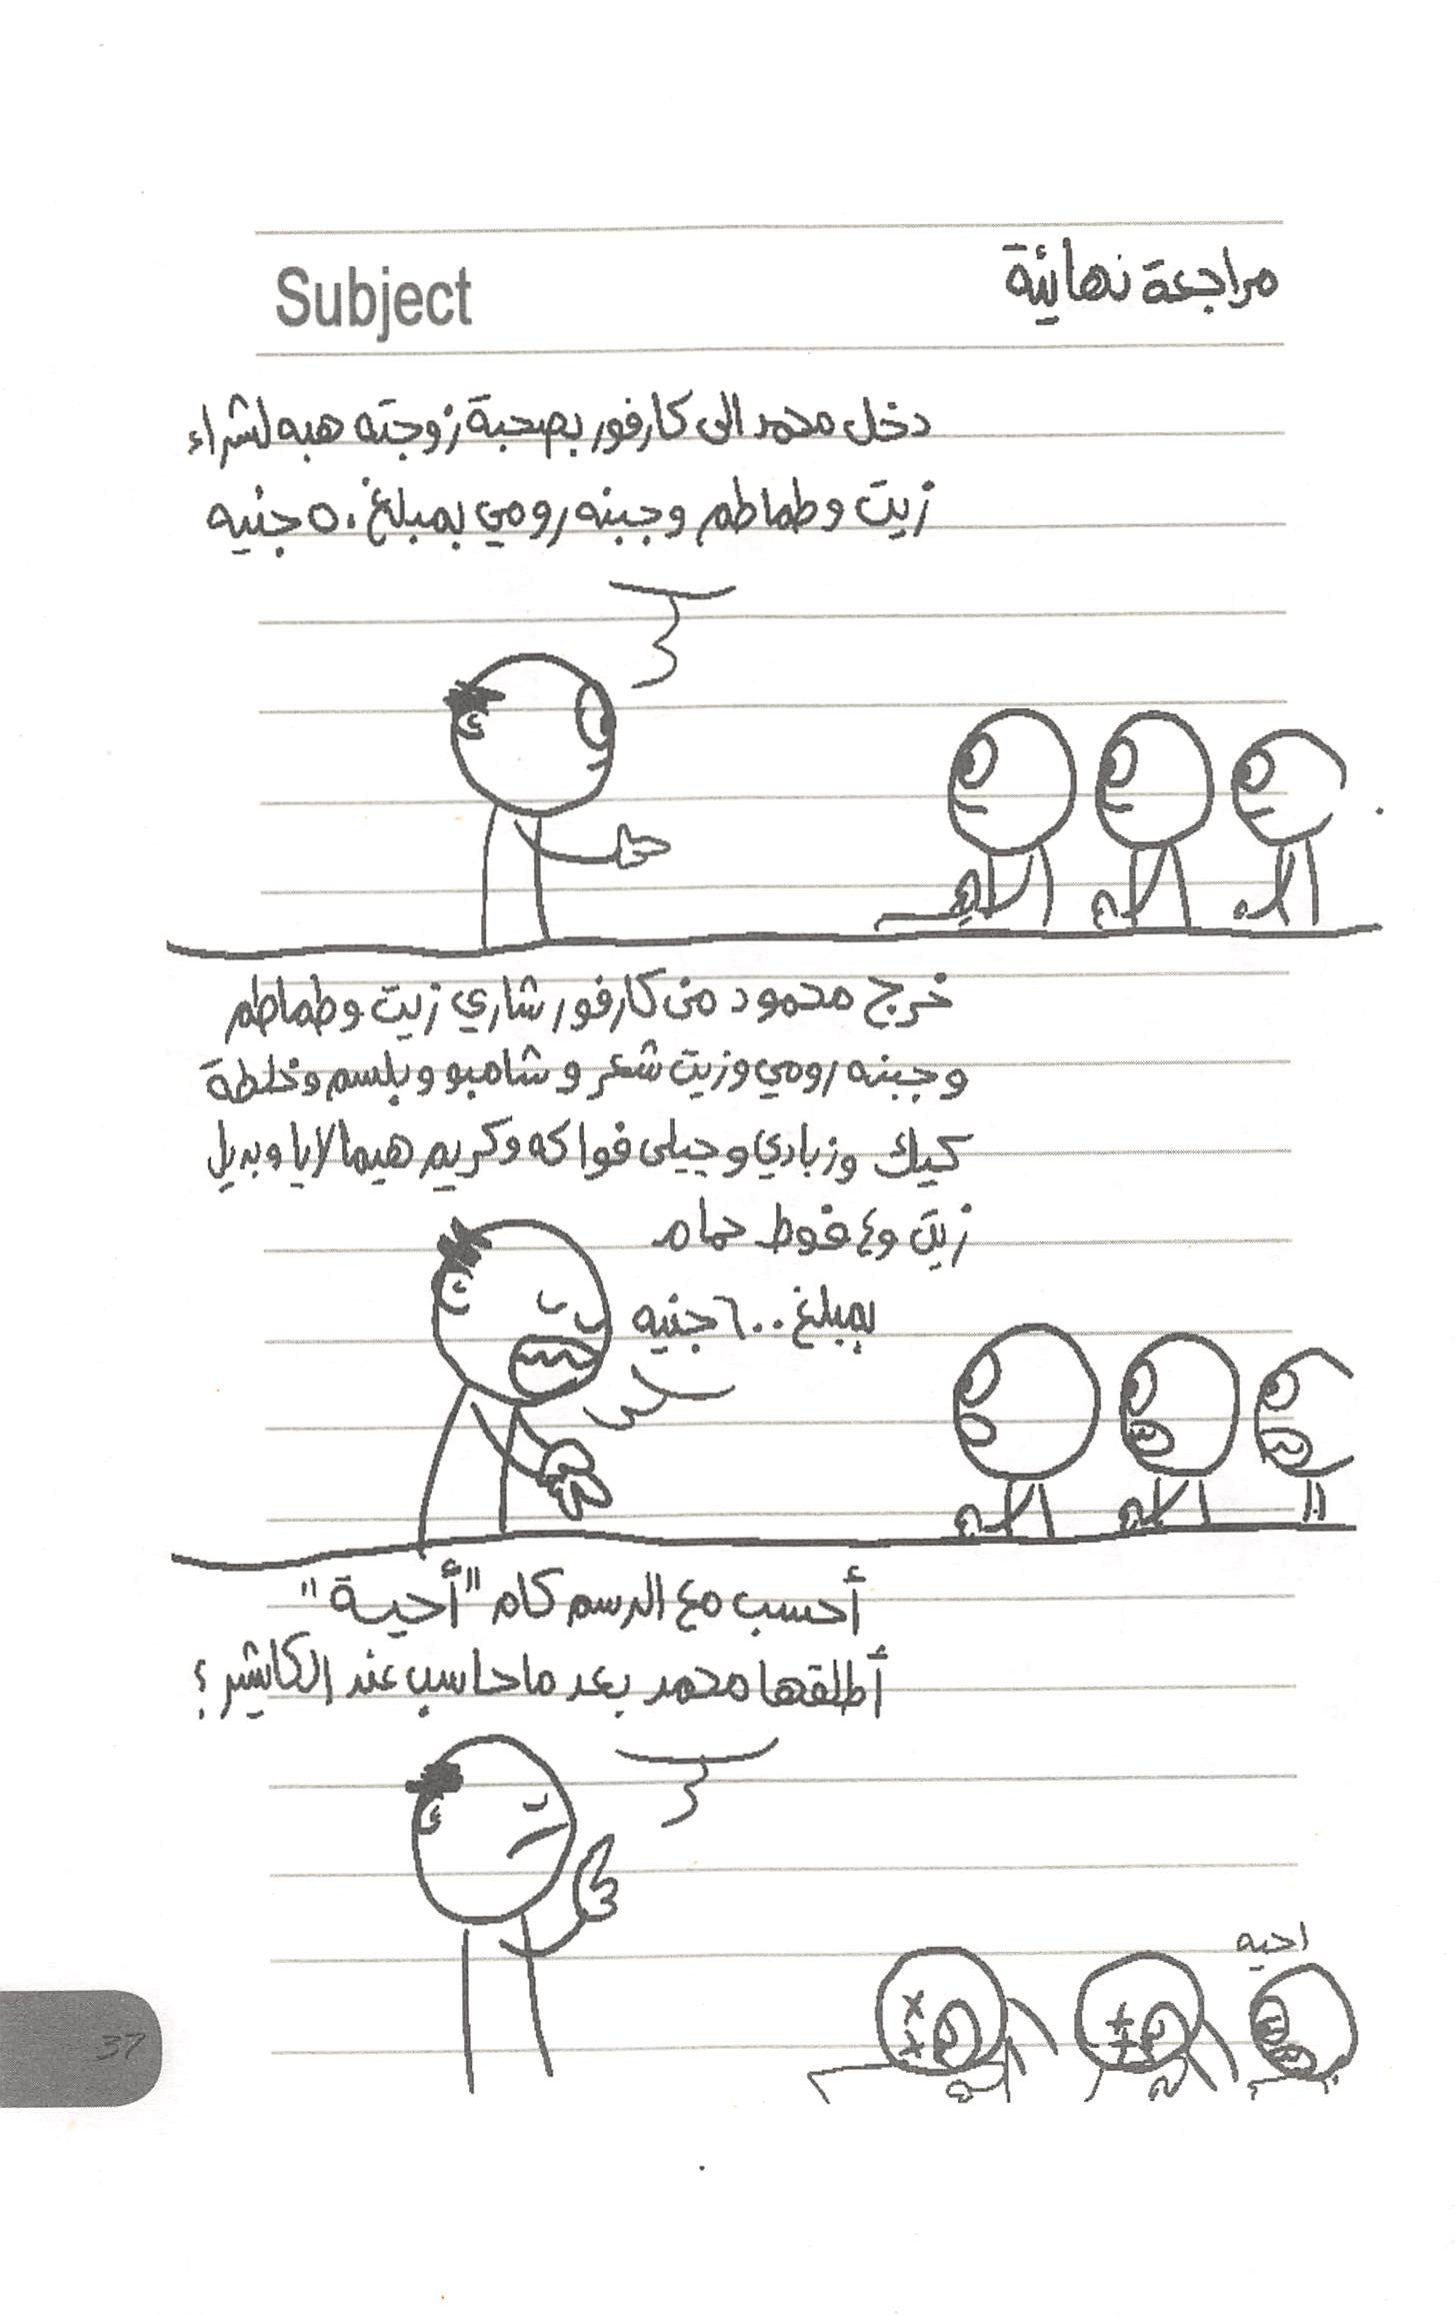 مراجعة نهائية
Subject
دخل محمد الى كارفور بصحبة زوجته هبه لشراء
زيت وطماطم وجبنه رومي بمبلغ ٥٠ جنيه
خرج محمود من كارفور شاري زيت وطماطم
وجبنه رومي وزيت شعر وشامبو وبلسم وخلطة
كيك وزبادي وجيلى فواكه وكريم هيمالايا وبديل
زيت و٤ فوط حمام
بمبلغ ٦٠٠ جنيه
أحسب مع الرسم كام "أحية"
أطلقها محمد بعد ماحاسب عند الكاشير؟
احيه
37